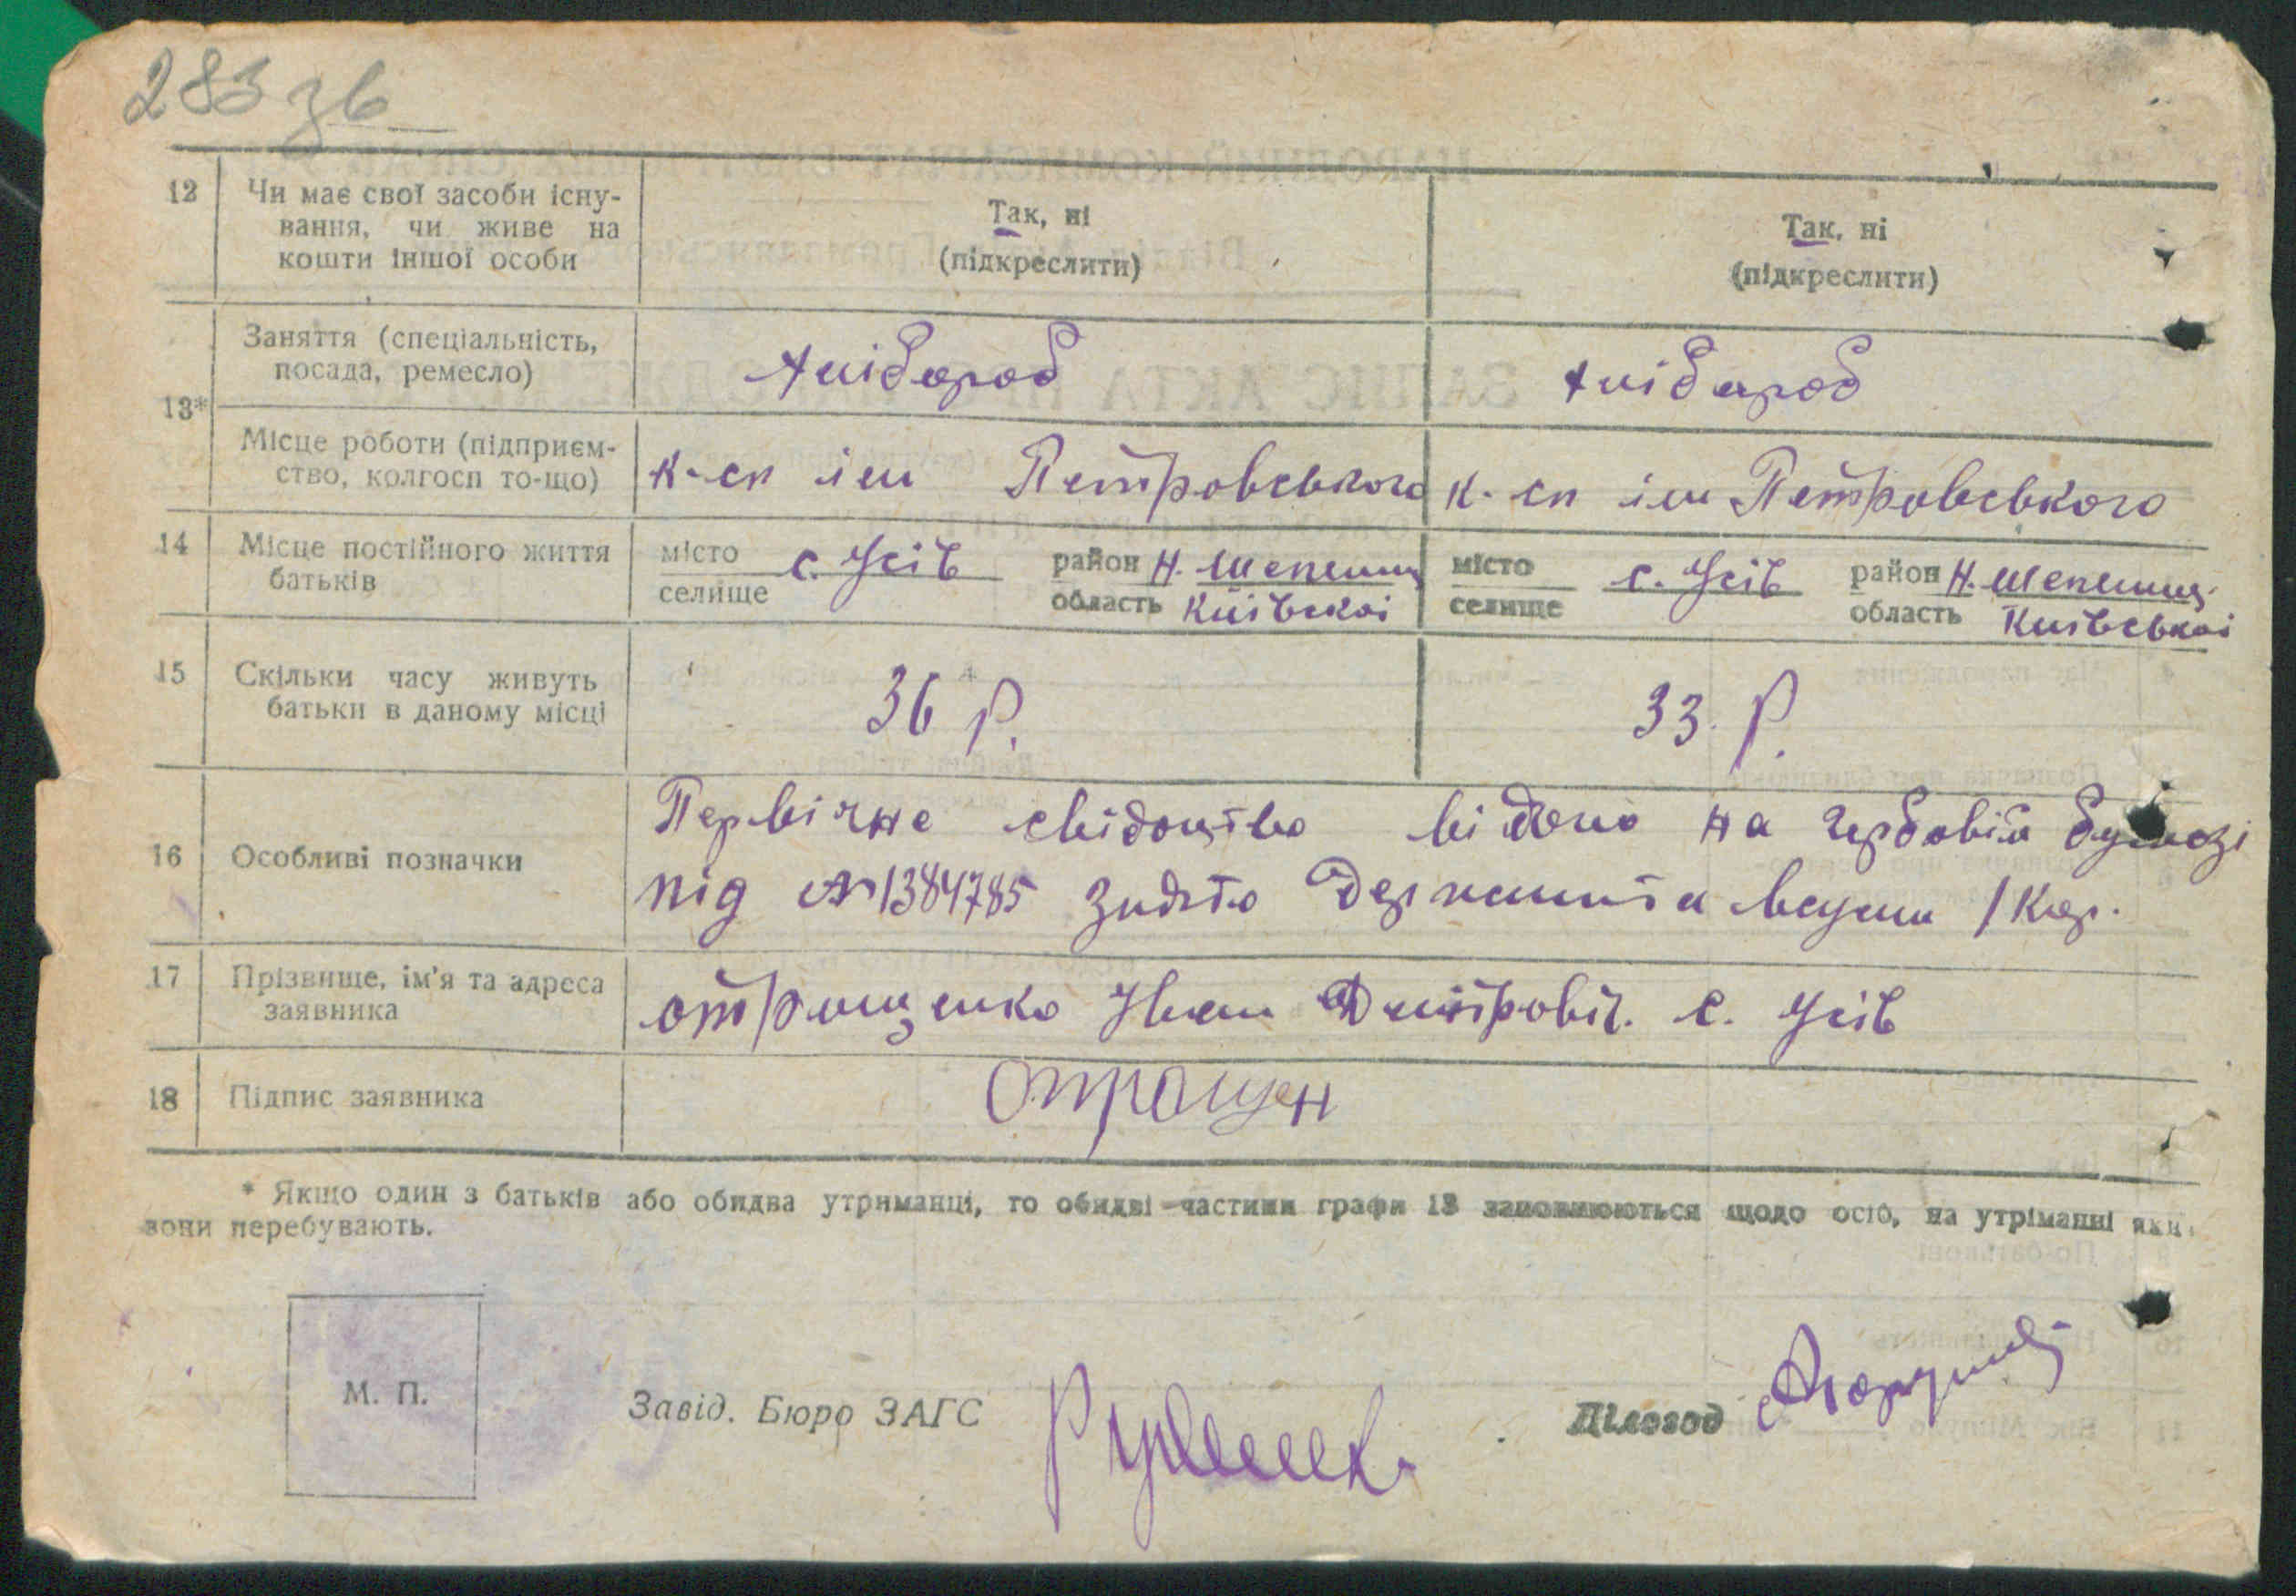 283 зв
12 Чи має свої засоби існу- Так, ні Так, ні
вання, чи живе на (підкреслити) (підкреслити)
кошти іншої особи
13* Заняття (спеціальність, Хлібороб Хлібороб
посада, ремесло)
Місце роботи (підприєм- к-сп ім Петровського к-сп ім Петровського
ство, колгосп то-що)
14 Місце постійного життя місто с. Усів район Н. Шепелиц місто с. Усів район Н. Шепелиц.
батьків селище область Київскоі селище область Київськоі
15 Скільки часу живуть 36 р. 33. р.
батьки в даному місці
16 Особливі позначки Первічне свідоцтво відано на гербовій бумозі
під № 1384785 Знято /Кор.
17 Прізвище, ім'я та адреса отрощенко Іван Дмітровіч. с. Усів
заявника
18 Підпис заявника Отрощен
* Якщо один з батьків або обидва утриманці, то обидві частини графи 13 заповнюються щодо осіб, на утріманні яких
вони перебувають.
М. П. Завід. Бюро ЗАГС Діловод